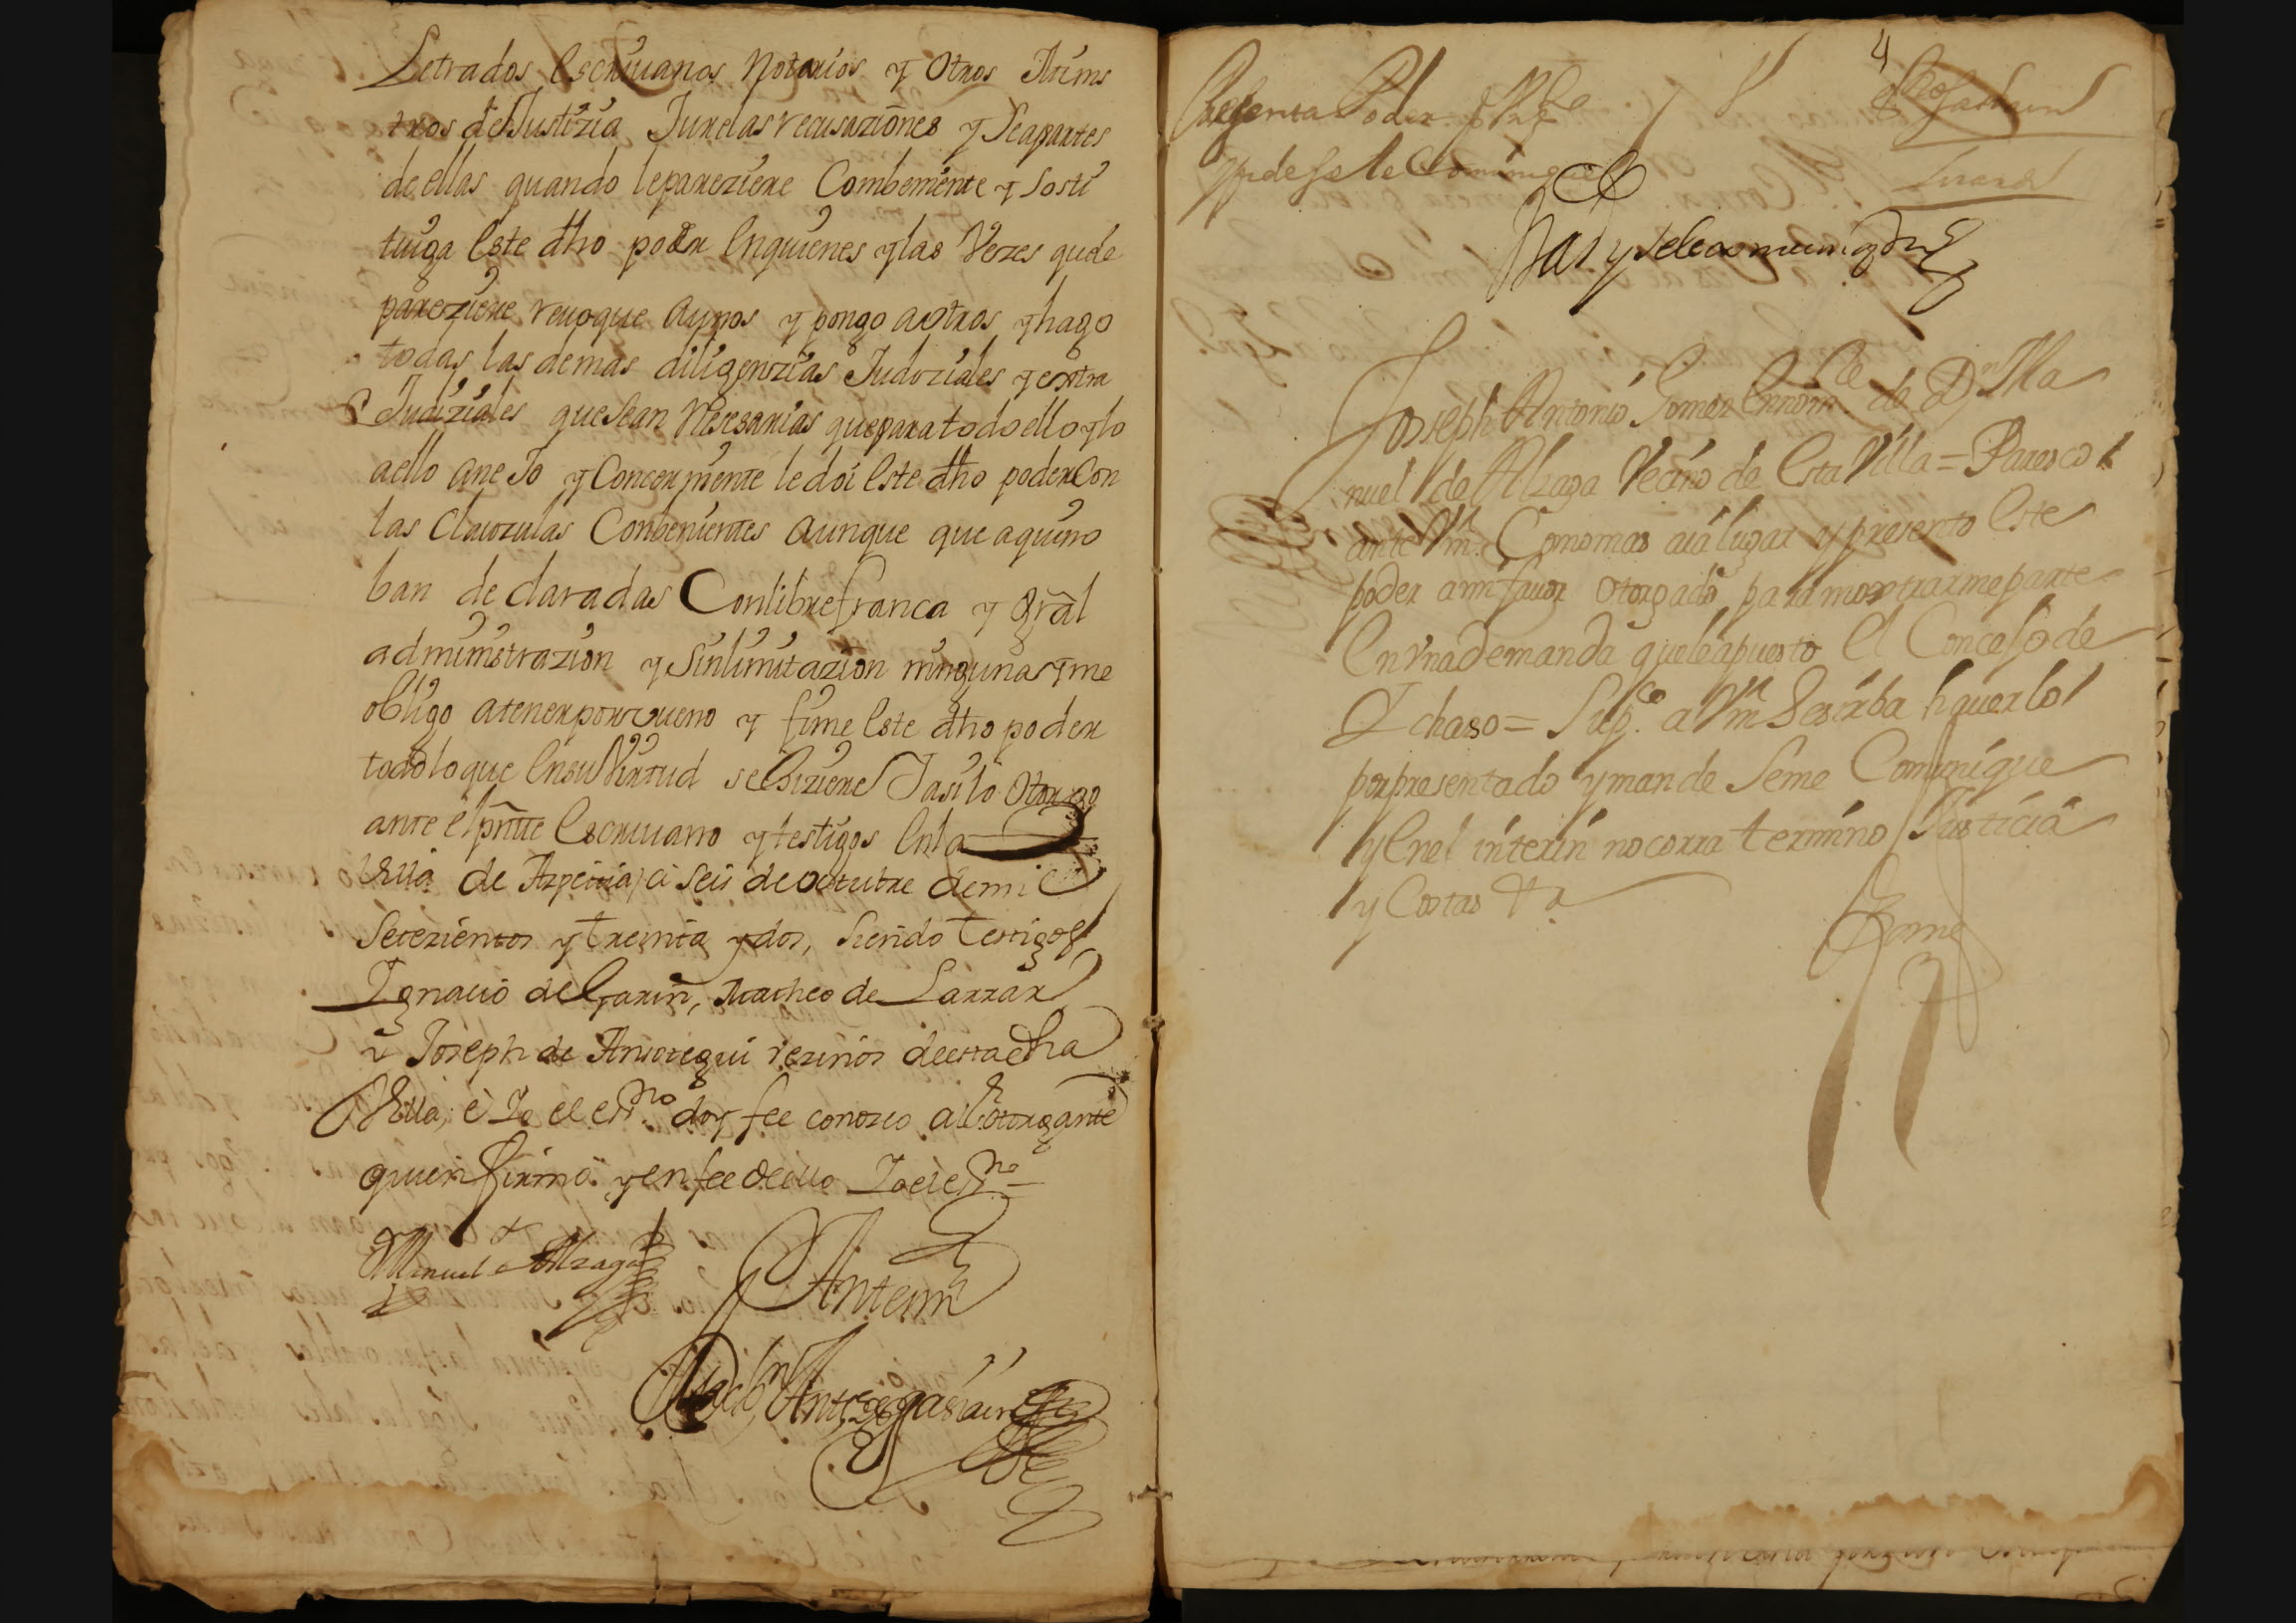 Letrados escriuanos notarios y otros Minis
tros de Justizia Jure las recusaziones y Se apartes
de ellas quando le pareziere Combeniente y sosti
tuiga este dho poder en quienes y las Vezes q̃ de
pareziere reuoque aynos y pongo a otros y hago
todas las demas diligenzias Judiziales y extra
Judiziales que sean Nesesarias que para todo ello y lo
a ello aneJo y Conzerniente le doi este dho poder Con
las Clauzulas Conbenientes aunque que aqui no
ban declaradas Con libre franca y gr̃al
administrazion y Sin limitazion ninguna y me
obligo a tener por vueno y firme este dho poder
todo lo que en su Virtud se hiziere J asi lo otorgo
ante el pr̃nte escriuano y testigos en la
Villa de Azpeitia, a seis de octubre de mil
Setezientos y treinta y dos, siendo testigos
Ignacio de Egarin, Matheo de Larrar
y Joseph de Ansoregui vezinos de esta dha
Villa, e Jo el esno doy fee conozco al otorgante
quien firmó y en fee de ello Jo el esno =
Manuel de Alzaga
Ante mi
4
Presenta Poder
y pide se le Comunique
Has y se le comunique
Joseph Antonio Gomez en nomre de Dn Ma
nuel de Alzaga Vecino de esta Villa = Paresco
ante Vm. Como mas aia lugar y presento este
poder a mi fauor otorgado para mostrarme parte
en vna demanda que le a puesto el Concejo de
Ychaso = Supco. a Vm Se sirba hauerlo
por presentado y mande Seme Comunique
y en el interin no corra termino Justicia
y Costas &a
Gomez